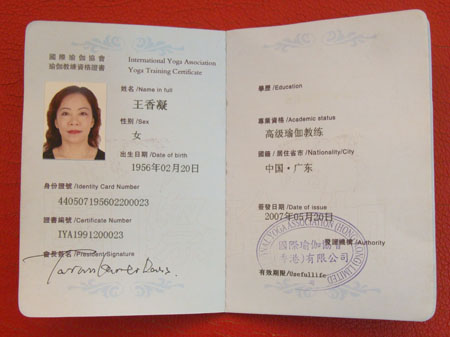 國際瑜伽協會
瑜伽教練資格證書
International Yoga Association
Yoga Training Certificate
姓名 /Name in full
王香凝
性别 /Sex
女
出生日期 /Date of birth
1956年02月20日
身份證號 /Identity Card Number
440507195602200023
證書編號 /Certificate Number
IYA1991200023
會長簽名 /President/Signature
學歷 /Education
專業資格 /Academic status
高级瑜伽教练
國籍 / 居住省市 / Nationality/City
中国·广东
簽發日期 /Date of issue
2007年05月20日
發證機構 /Authority
YOGA ASSOCIATION (HONG KONG) LIMITED
國際瑜伽協會
(香港)有限公司
有效期限 /Usefullife